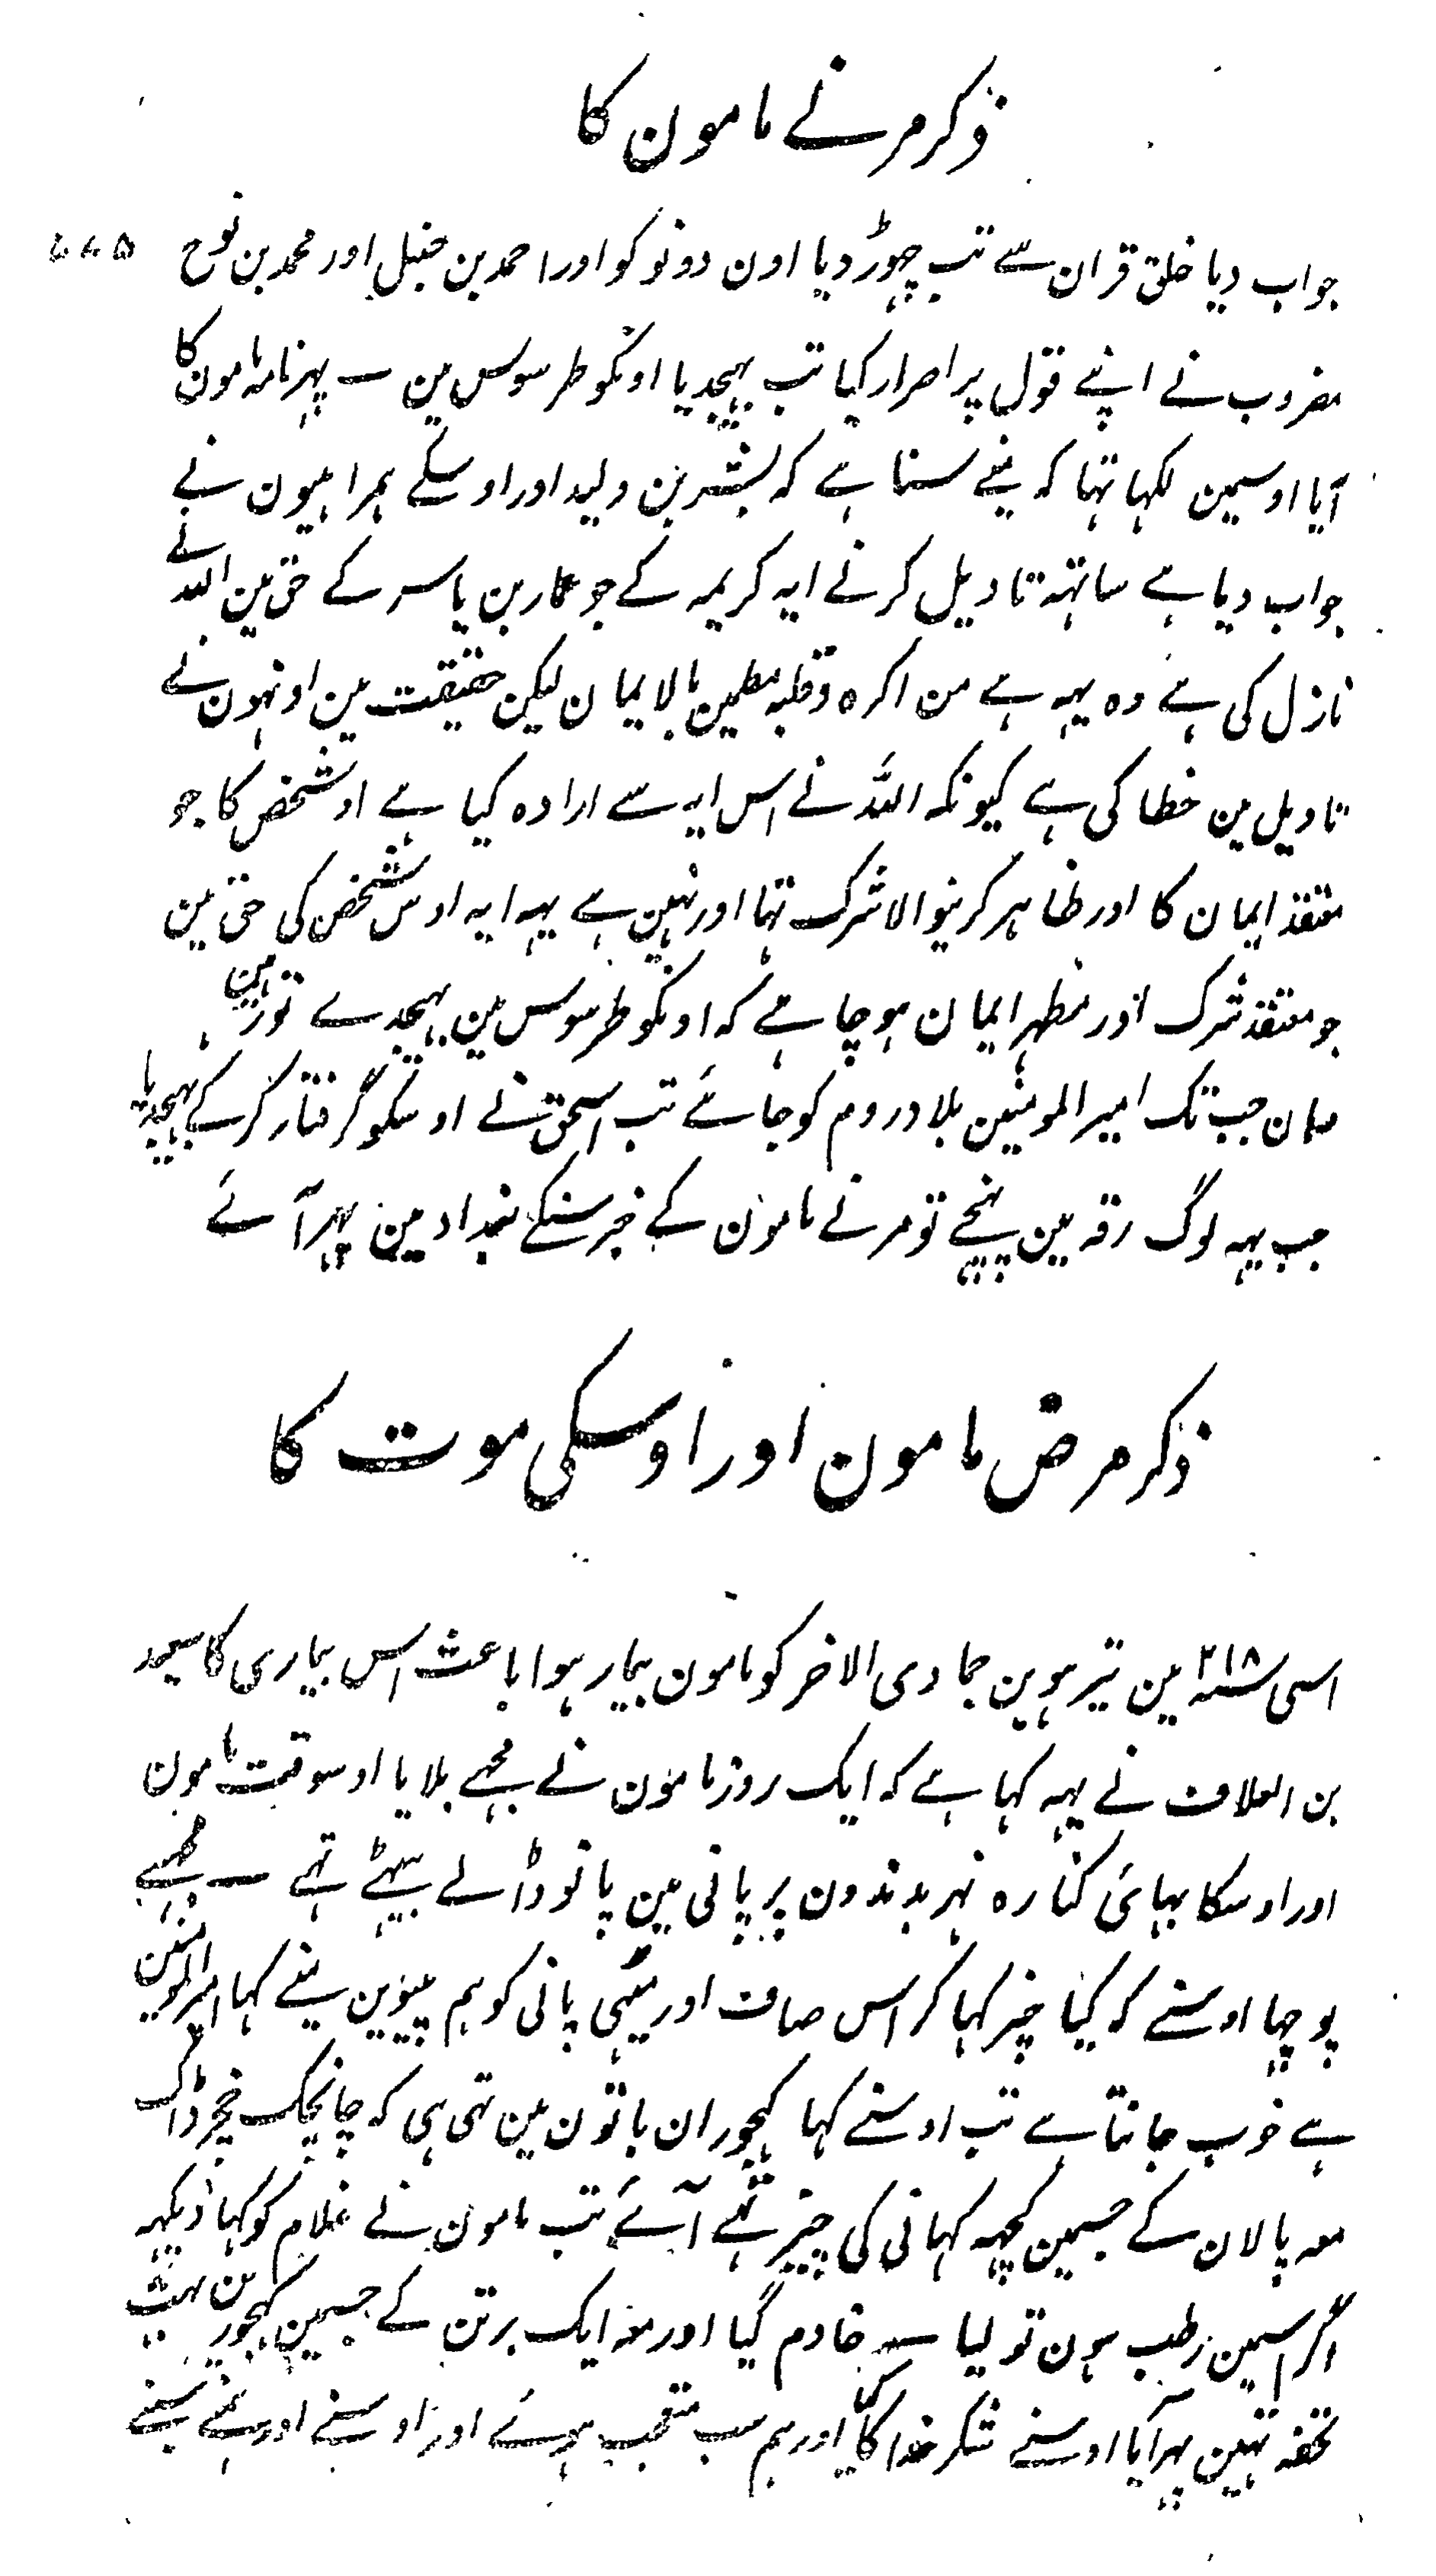 ذکر مرنے مامون کا
۵۷۵
جواب دیا خلق قران سے تب چہوڑ دیا اون دونو کو اور احمد بن حنبل اور محمد بن نوح
مضروب نے اپنے قول پر اصرار کیا تب بہیجدیا اونکو طرسوس مین ۔ پہر نامہ مامون کا
آیا اوسمین لکہا تہا کہ مینے سنا ہے کہ بشر بن ولید اور اوسکے ہمراہیون نے
جواب دیا ہے ساتہہ تاویل کرنے ایہ کریمہ کے جو عمار بن یاسر کے حق مین اللہ نے
نازل کی ہے وہ یہہ ہے من اکرہ وقلبہ مطمین بالایمان لیکن حقیقت مین اونہون نے
تاویل مین خطا کی ہے کیونکہ اللہ نے اس ایہ سے ارادہ کیا ہے اوشخص کا جو
متقد ایمان کا اور ظاہر کرنیوالا شرک تہا اور نہین ہے یہہ ایہ اوس شخص کی حق مین
جو معتقد شرک اور مظہر ایمان ہو چاہے کہ اونکو طرسوس مین بہیجدے تو رہین
وہان جب تک امیر المومنین بلاد روم کو جائے تب اسحق نے اوسکو گرفتار کر کے بہیجدیا
جب یہہ لوگ رقہ مین پہنچے تو مرنے مامون کے خبر سنکے بغداد مین پہر آئے
ذکر مرض مامون اور اوسکی موت کا
اسی سنہ ۲۱۸ مین تیرہوین جمادی الاخر کو مامون بیمار ہوا باعث اس بیماری کا سعید
بن العلاف نے یہہ کہا ہے کہ ایک روز مامون نے مجہے بلایا اوسوقت مامون
اور اوسکا بہائی کنارہ نہر بدندون پر پانی مین پانو ڈالے بیٹہے تہے ۔ مجہسے
پوچہا اوسنے کہ کیا چیز کہا کر اس صاف اور میٹہی پانی کو ہم پیوین مینے کہا امیر المومنین
ہے خوب جانتا ہے تب اوسنے کہا کہجور ان باتون مین تہی ہی کہ اچانچک خچر ڈاک
معہ پالان کے جسمین کچہہ کہانی کی چیز تہے آئے تب مامون نے غلام کو کہا دیکہہ
اگر اسمین رطب ہون تو لیا ۔ خادم گیا اور معہ ایک برتن کے جسمین کہجورین بہت
تحفہ تہین پہر آیا اوسنے شکر خدا کا کیا اور ہم سب متعجب ہوئے اور اوسنے اور ہمنے سبنے